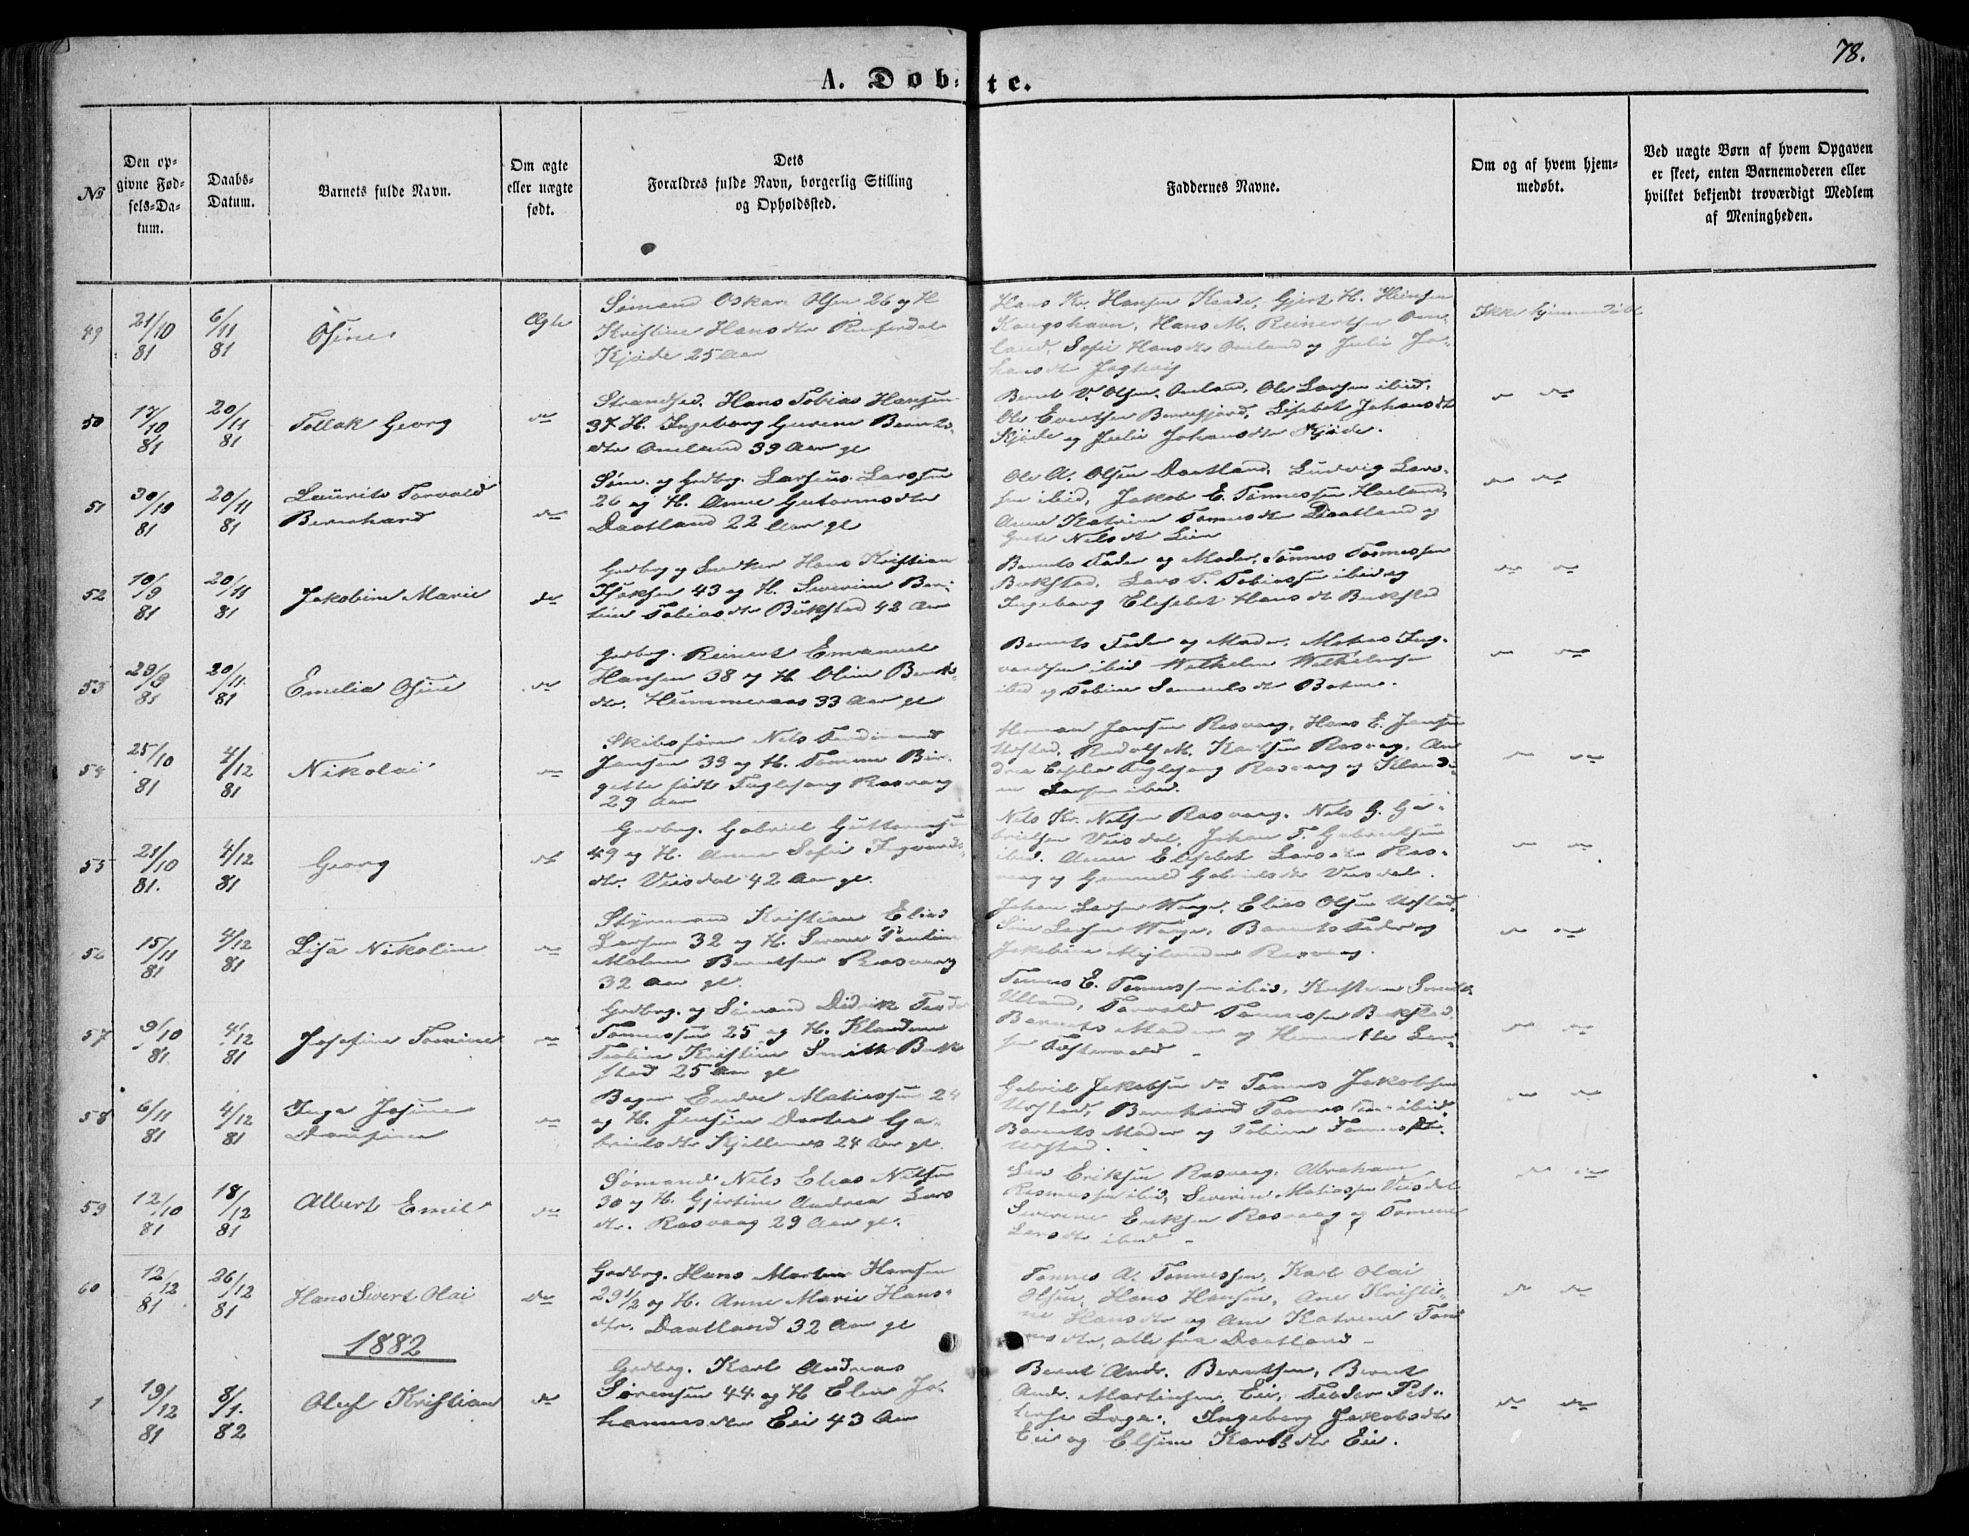 78.
A. Døbte.
No
Den opgivne Fødsels-Datum.
Daabs-Datum.
Barnets fulde Navn.
Om ægte eller uægte født.
Dets Forældres fulde Navn, borgerlig Stilling og Opholdssted.
Faddernes Navne.
Om og af hvem hjemmedøbt.
Ved uægte Børn af hvem Opgaven er skeet, enten Barnemoderen eller hvilket bekjendt troværdigt Medlem af Menigheden.
49
21/10 81
6/11 81
Osine
Ægte
Sømand Oskar Olsen 26 og H
Kristine Hansdtr
Kjøde 25 Aar
Hans Kr. Hansen Kaade, Gjert H. Heinsen
Kongshavn, Hans M. Reinertsen Ome-
land, Sofie Hansdtr Omland og Julie Jo-
hansdtr
Ikke hjemmedøbt
50
17/10 81
20/11 81
Tollak Georg
do
Strandsed. Hans Tobias Hansen
37 H. Ingeborg Gurine Bernts-
dtr Omland 39 Aar gl
Bernt V. Olsen Omland, Ole Larsen ibid,
Ole Evertsen Bandefjord, Lisebet Johansdtr
Kjøde og Julie Johansdtr Kjøde.
51
30/10 81
20/11 81
Laurits Torvald
Bernhard
do
Søm. og Grdbrg. Larseus Larssen
26 og H. Anne Gutormsdtr
Daatland 22 Aar gl
Ole A. Olsen Daatland, Ludvig Lars-
sen ibid, Jakob E. Tønnessen Haaland,
Anne Katrine Tønnesdtr Daatland og
Grete Nilsdtr Lien
52
10/9 81
20/11 81
Jakobine Marie
do
Grdbrg og Snedker Hans Kristian
Isaksen 43 og H. Severine Ber-
tine Tobiasdtr Bukstad 42 Aar
Barnets Fader og Moder, Tønnes Tønnessen
Bukstad, Lars T. Tobiassen ibid og
Ingeborg Elisebet Hansdtr Bukstad
53
29/9 81
20/11 81
Emelie Osine
do
Grdbrg. Reinert Emanuel
Hansen 38 og H. Oline Bernts-
dtr. Hummeraas 33 Aar gl
Barnets Fader og Moder, Mathias Ing-
vardsen ibid Wilhelm Wilhelmsen
ibid og Tobine Samuelsdtr Botne.
54
25/10 81
4/12 81
Nikolai
do
Skibsfører Nils Ferdinand
Jansen 33 og H. Tomine Bir-
gette født Fuglesang Rasvaag
29 Aar
Herman Jansen Rasvaag, Hans E. Jansen
Urstad, Rudolf M. Karlsen Rasvaag, An-
drea Fuglesang Rasvaag og
Larsen ibid.
55
21/10 81.
4/12 81
Georg
do
Grdbrg. Gabriel Guttormsen
49 og H. Anne Sofie Ingvards-
dtr. Viisdal 42 Aar gl.
Nils Kr. Nilsen Rasvaag, Nils G. Ga-
brielsen Viisdal, Johan T. Gabrielsen
ibid. Anne Elisebet Larsdtr Ras-
vaag og Gunnuld Gabrielsdtr Viisdal.
56
15/11 81
4/12 81
Lisa Nikoline
do
Styrmand Kristian Elias
Larsen 32 og H. Serine Pauline
Malene Berntsen Rasvaag
32 Aar gl.
Johan Larsen Waage, Elias Olsen Urstad,
Sine Larsen Waage, Barnets Fader og
Jakobine Rasvaag.
57
9/10 81
4/12 81
Josefine Tomine
do
Grdbrg. og Sømand Didrik Teodor
Tønnessen 25 og H. Klaudine
Teoline Kristine Smith Buk-
stad 25 Aar gl
Tønnes E. Tønnessen ibid, Kristian Smith
Ulland, Torvald Tønnessen Bukstad
Barnets Moder og Henriette Lar-
sen
58
6/11 81
4/12 81
Inga Josine
Dausine
do
Bager Endre Matiassen 24
og H. Jensine Dortea Ga-
brielsdtr Kjellenes 24 Aar gl.
Gabriel Jakobsen do Tønnes Jakobsen
Urstad, Bernhard Tønnessen ibid
Barnets Moder og Tobine Tønnesdtr.
Urstad.
59
12/10 81
18/12 81
Albert Emil
do
Sømand Nils Elias Nilsen
30 og H. Gjertine Andrea Lars
dtr. Rasvaag 29 Aar gl.
Lars Eriksen Rasvaag, Abraham
Rasmussen ibid, Severin Matiassen Viisdal
Severine Eriksen Rasvaag og Tomine
Larsdtr ibid
60
12/12 81
26/12 81
Hans Sivert Olai
do
Grdbrg. Hans Martin Hansen
29 1/2 og H. Anne Marie Hans-
dtr. Daatland 32 Aar gl
Tønnes A. Tønnessen, Karl Olai
Olsen, Hans Hansen, Ane Kristi-
ne Hansdtr og Ane Katrine Tøn-
nesdtr, alle fra Daatland
1882
1
19/12 81
8/1. 82
Oluf Kristian
do
Grdbrg. Karl Andreas
Sørensen 44 og H Elen Jo-
hannesdtr Eie 43 Aar
Bernt Andr. Berntsen, Bernt
Andr. Martinsen Eie, Teodor Pet-
tersen Loga, Ingeborg Jakobsdtr
Eie og Elsine Karlsdtr Eie.